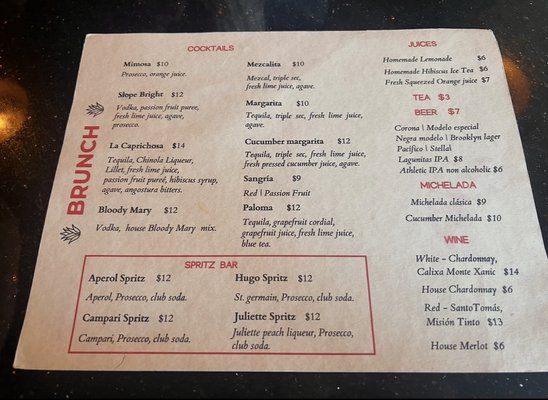 BRUNCH
COCKTAILS
Mimosa $10
Prosecco, orange juice.
Slope Bright $12
Vodka, passion fruit puree,
fresh lime juice, agave,
prosecco.
La Caprichosa $14
Tequila, Chinola Liqueur,
Lillet, fresh lime juice,
passion fruit pureé, hibiscus syrup,
agave, angostura bitters.
Bloody Mary $12
Vodka, house Bloody Mary mix.
Mezcalita $10
Mezcal, triple sec,
fresh lime juice, agave.
Margarita $10
Tequila, triple sec, fresh lime juice,
agave.
Cucumber margarita $12
Tequila, triple sec, fresh lime juice,
fresh pressed cucumber juice, agave.
Sangría $9
Red | Passion Fruit
Paloma $12
Tequila, grapefruit cordial,
grapefruit juice, fresh lime juice,
blue tea.
SPRITZ BAR
Aperol Spritz $12
Aperol, Prosecco, club soda.
Campari Spritz $12
Campari, Prosecco, club soda.
Hugo Spritz $12
St. germain, Prosecco, club soda.
Juliette Spritz $12
Juliette peach liqueur, Prosecco,
club soda.
JUICES
Homemade Lemonade $6
Homemade Hibiscus Ice Tea $6
Fresh Squeezed Orange juice $7
TEA $3
BEER $7
Corona | Modelo especial
Negra modelo | Brooklyn lager
Pacífico | Stella|
Lagunitas IPA $8
Athletic IPA non alcoholic $6
MICHELADA
Michelada clásica $9
Cucumber Michelada $10
WINE
White - Chardonnay,
Calixa Monte Xanic $14
House Chardonnay $6
Red - SantoTomás,
Misión Tinto $13
House Merlot $6